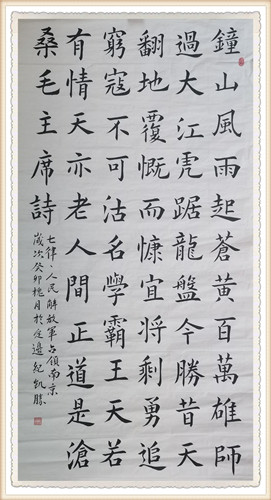 鐘山風雨起蒼黃百萬雄師
過大江虎踞龍盤今勝昔天
翻地覆慨而慷宜將剩勇追
窮寇不可沽名學霸王天若
有情天亦老人間正道是滄
桑毛主席詩
七律·人民解放軍占領南京
歲次癸卯桃月於定邊紀凱勝